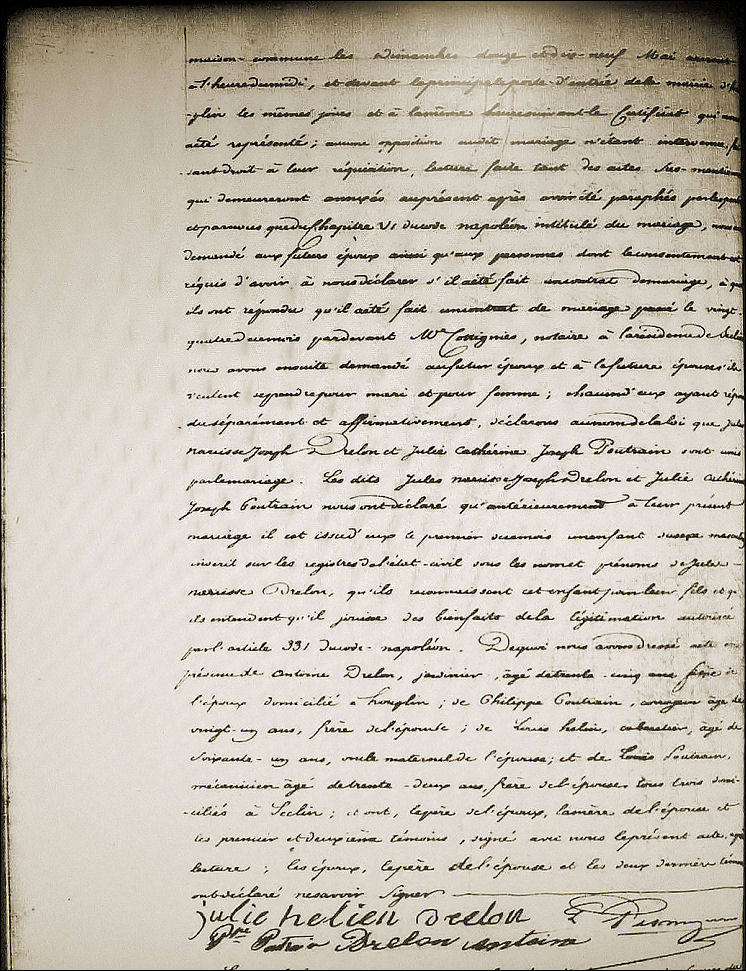 maison-commune les Dimanches douze et dix-neuf Mai
à l'heure de midi, et devant la principale porte d'entrée de la mairie
-plin les mêmes jours et à la même heure suivant le Certificat qui
a été représenté ; aucune opposition audit mariage n'étant intervenue,
-sant droit à leur réquisition, lecture faite tant des actes sus-mention
qui demeureront annexés au présent après avoir été paraphés par
et par nous que du Chapitre VI du code napoléon intitulé du mariage, nous
demandé aux futurs époux ainsi qu'aux personnes dont le consentement est
réquis d'avoir à nous déclarer s'il a été fait un contrat de mariage, à quoi
ils ont répondu qu'il a été fait un contrat de mariage passé le vingt-
quatre du mois par devant Me Cottignies, notaire à la résidence de Seclin
nous avons ensuite demandé au futur époux et à la future épouse s'ils
veulent se prendre pour mari et pour femme ; chacun d'eux ayant répon
du séparément et affirmativement, déclarons au nom de la loi que Jules
narcisse Joseph Drelon et Julie Catherine Joseph Poutrain sont unis
par le mariage. Les dits Jules narcisse Joseph Drelon et Julie Catherine
Joseph Poutrain nous ont déclaré qu'antérieurement à leur présent
mariage il est issu d'eux le premier du mois un enfant du sexe masculin
inscrit sur les registres de l'état-civil sous les nom et prénoms de Jules-
narcisse Drelon, qu'ils reconnaissent cet enfant pour leur fils et qu
ils entendent qu'il jouisse des bienfaits de la légitimation autorisée
par l'article 331 du code-napoléon. De quoi nous avons dressé acte en
présence de Antoine Drelon, jardinier, âgé de trente-cinq ans frère de
l'époux domicilié à houplin ; de Philippe Poutrain, âgé de
vingt-un ans, frère de l'épouse ; de Louis helin, cabaretier, âgé de
soixante-un ans, oncle maternel de l'épouse ; et de Louis Poutrain,
mécanicien âgé de trente-deux ans, frère de l'épouse tous trois domi-
-ciliés à Seclin ; et ont, le père de l'époux, la mère de l'épouse et
les premier et deuxième témoins, signé avec nous le présent acte après
lecture ; les époux, le père de l'épouse et les deux derniers témoins
ont déclaré ne savoir signer
julie helien Drelon
Drelon Antoine